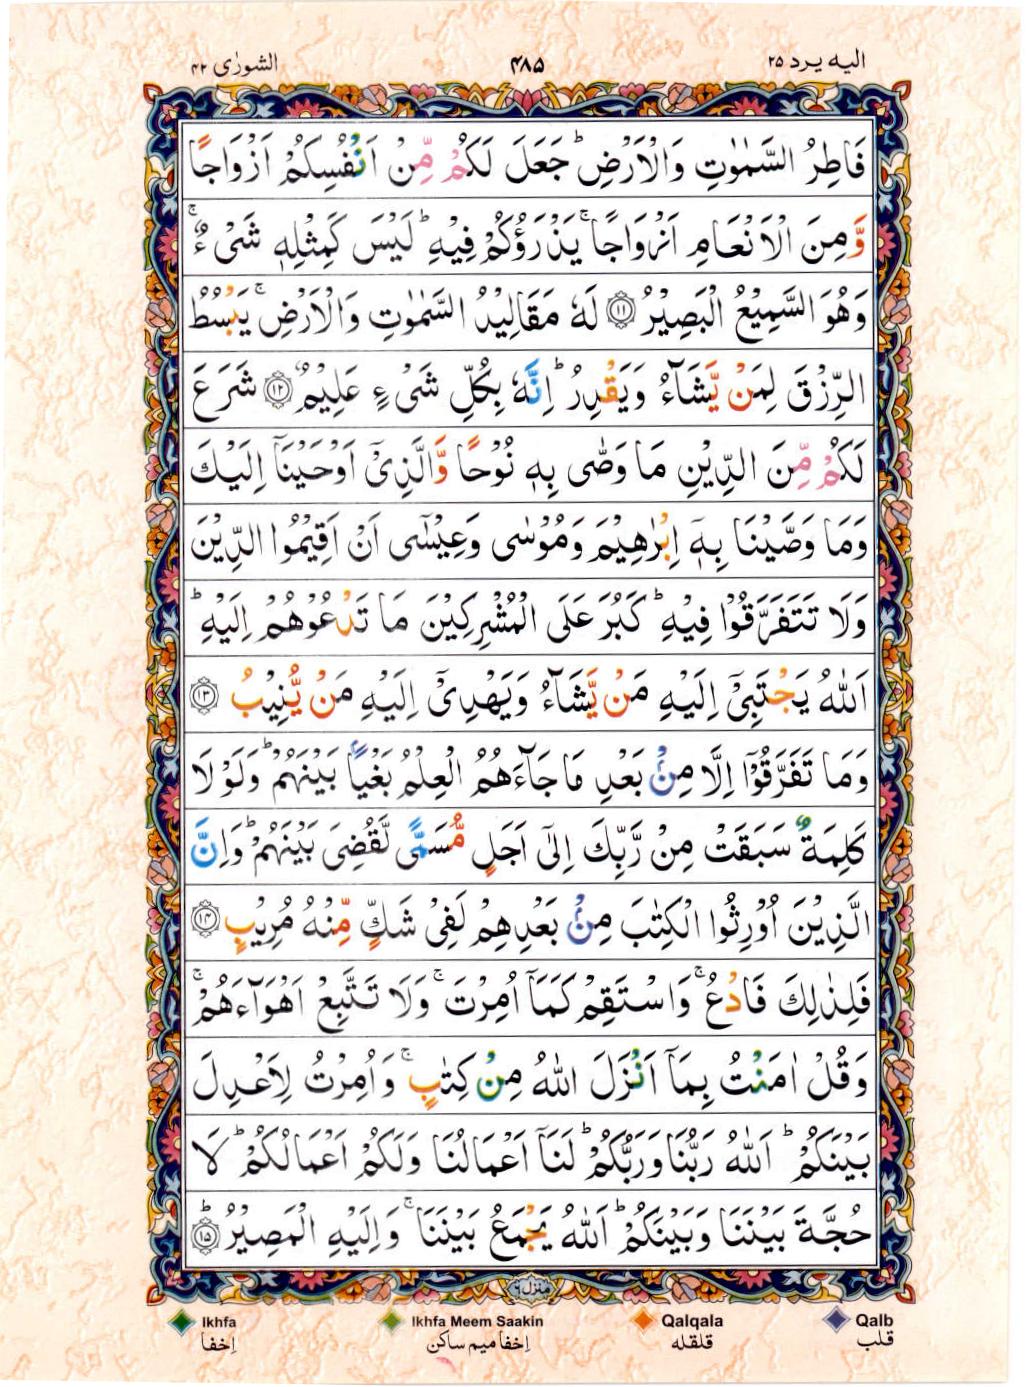 الشورٰی ۴۲ ۴۸۵ الیه یرد ۲۵
فَاطِرُ السَّمٰوٰتِ وَالْاَرْضِ ؕ جَعَلَ لَكُمْ مِّنْ اَنْفُسِكُمْ اَزْوَاجًا
وَّمِنَ الْاَنْعَامِ اَزْوَاجًا ۚ يَذْرَؤُكُمْ فِيْهِ ؕ لَيْسَ كَمِثْلِهٖ شَىْءٌ ۚ
وَهُوَ السَّمِيْعُ الْبَصِيْرُ ۝۱۱ لَهٗ مَقَالِيْدُ السَّمٰوٰتِ وَالْاَرْضِ ۚ يَبْسُطُ
الرِّزْقَ لِمَنْ يَّشَآءُ وَيَقْدِرُ ؕ اِنَّهٗ بِكُلِّ شَىْءٍ عَلِيْمٌ ۝۱۲ شَرَعَ
لَكُمْ مِّنَ الدِّيْنِ مَا وَصّٰى بِهٖ نُوْحًا وَّالَّذِىْۤ اَوْحَيْنَاۤ اِلَيْكَ
وَمَا وَصَّيْنَا بِهٖۤ اِبْرٰهِيْمَ وَمُوْسٰى وَعِيْسٰٓى اَنْ اَقِيْمُوا الدِّيْنَ
وَلَا تَتَفَرَّقُوْا فِيْهِ ؕ كَبُرَ عَلَى الْمُشْرِكِيْنَ مَا تَدْعُوْهُمْ اِلَيْهِ ؕ
اَللّٰهُ يَجْتَبِىْۤ اِلَيْهِ مَنْ يَّشَآءُ وَيَهْدِىْۤ اِلَيْهِ مَنْ يُّنِيْبُ ۝۱۳
وَمَا تَفَرَّقُوْۤا اِلَّا مِنْۢ بَعْدِ مَا جَآءَهُمُ الْعِلْمُ بَغْيًاۢ بَيْنَهُمْ ؕ وَلَوْلَا
كَلِمَةٌ سَبَقَتْ مِنْ رَّبِّكَ اِلٰٓى اَجَلٍ مُّسَمًّى لَّقُضِىَ بَيْنَهُمْ ؕ وَاِنَّ
الَّذِيْنَ اُوْرِثُوا الْكِتٰبَ مِنْۢ بَعْدِهِمْ لَفِىْ شَكٍّ مِّنْهُ مُرِيْبٍ ۝۱۴
فَلِذٰلِكَ فَادْعُ ۚ وَاسْتَقِمْ كَمَاۤ اُمِرْتَ ۚ وَلَا تَتَّبِعْ اَهْوَآءَهُمْ ۚ
وَقُلْ اٰمَنْتُ بِمَاۤ اَنْزَلَ اللّٰهُ مِنْ كِتٰبٍ ۚ وَاُمِرْتُ لِاَعْدِلَ
بَيْنَكُمْ ؕ اَللّٰهُ رَبُّنَا وَرَبُّكُمْ ؕ لَنَاۤ اَعْمَالُنَا وَلَكُمْ اَعْمَالُكُمْ ؕ لَا
حُجَّةَ بَيْنَنَا وَبَيْنَكُمْ ؕ اَللّٰهُ يَجْمَعُ بَيْنَنَا ۚ وَاِلَيْهِ الْمَصِيْرُ ؕ ۝۱۵
منزل ۶
Ikhfa Ikhfa Meem Saakin Qalqala Qalb
اِخفا اِخفا میم ساکن قلقله قلب